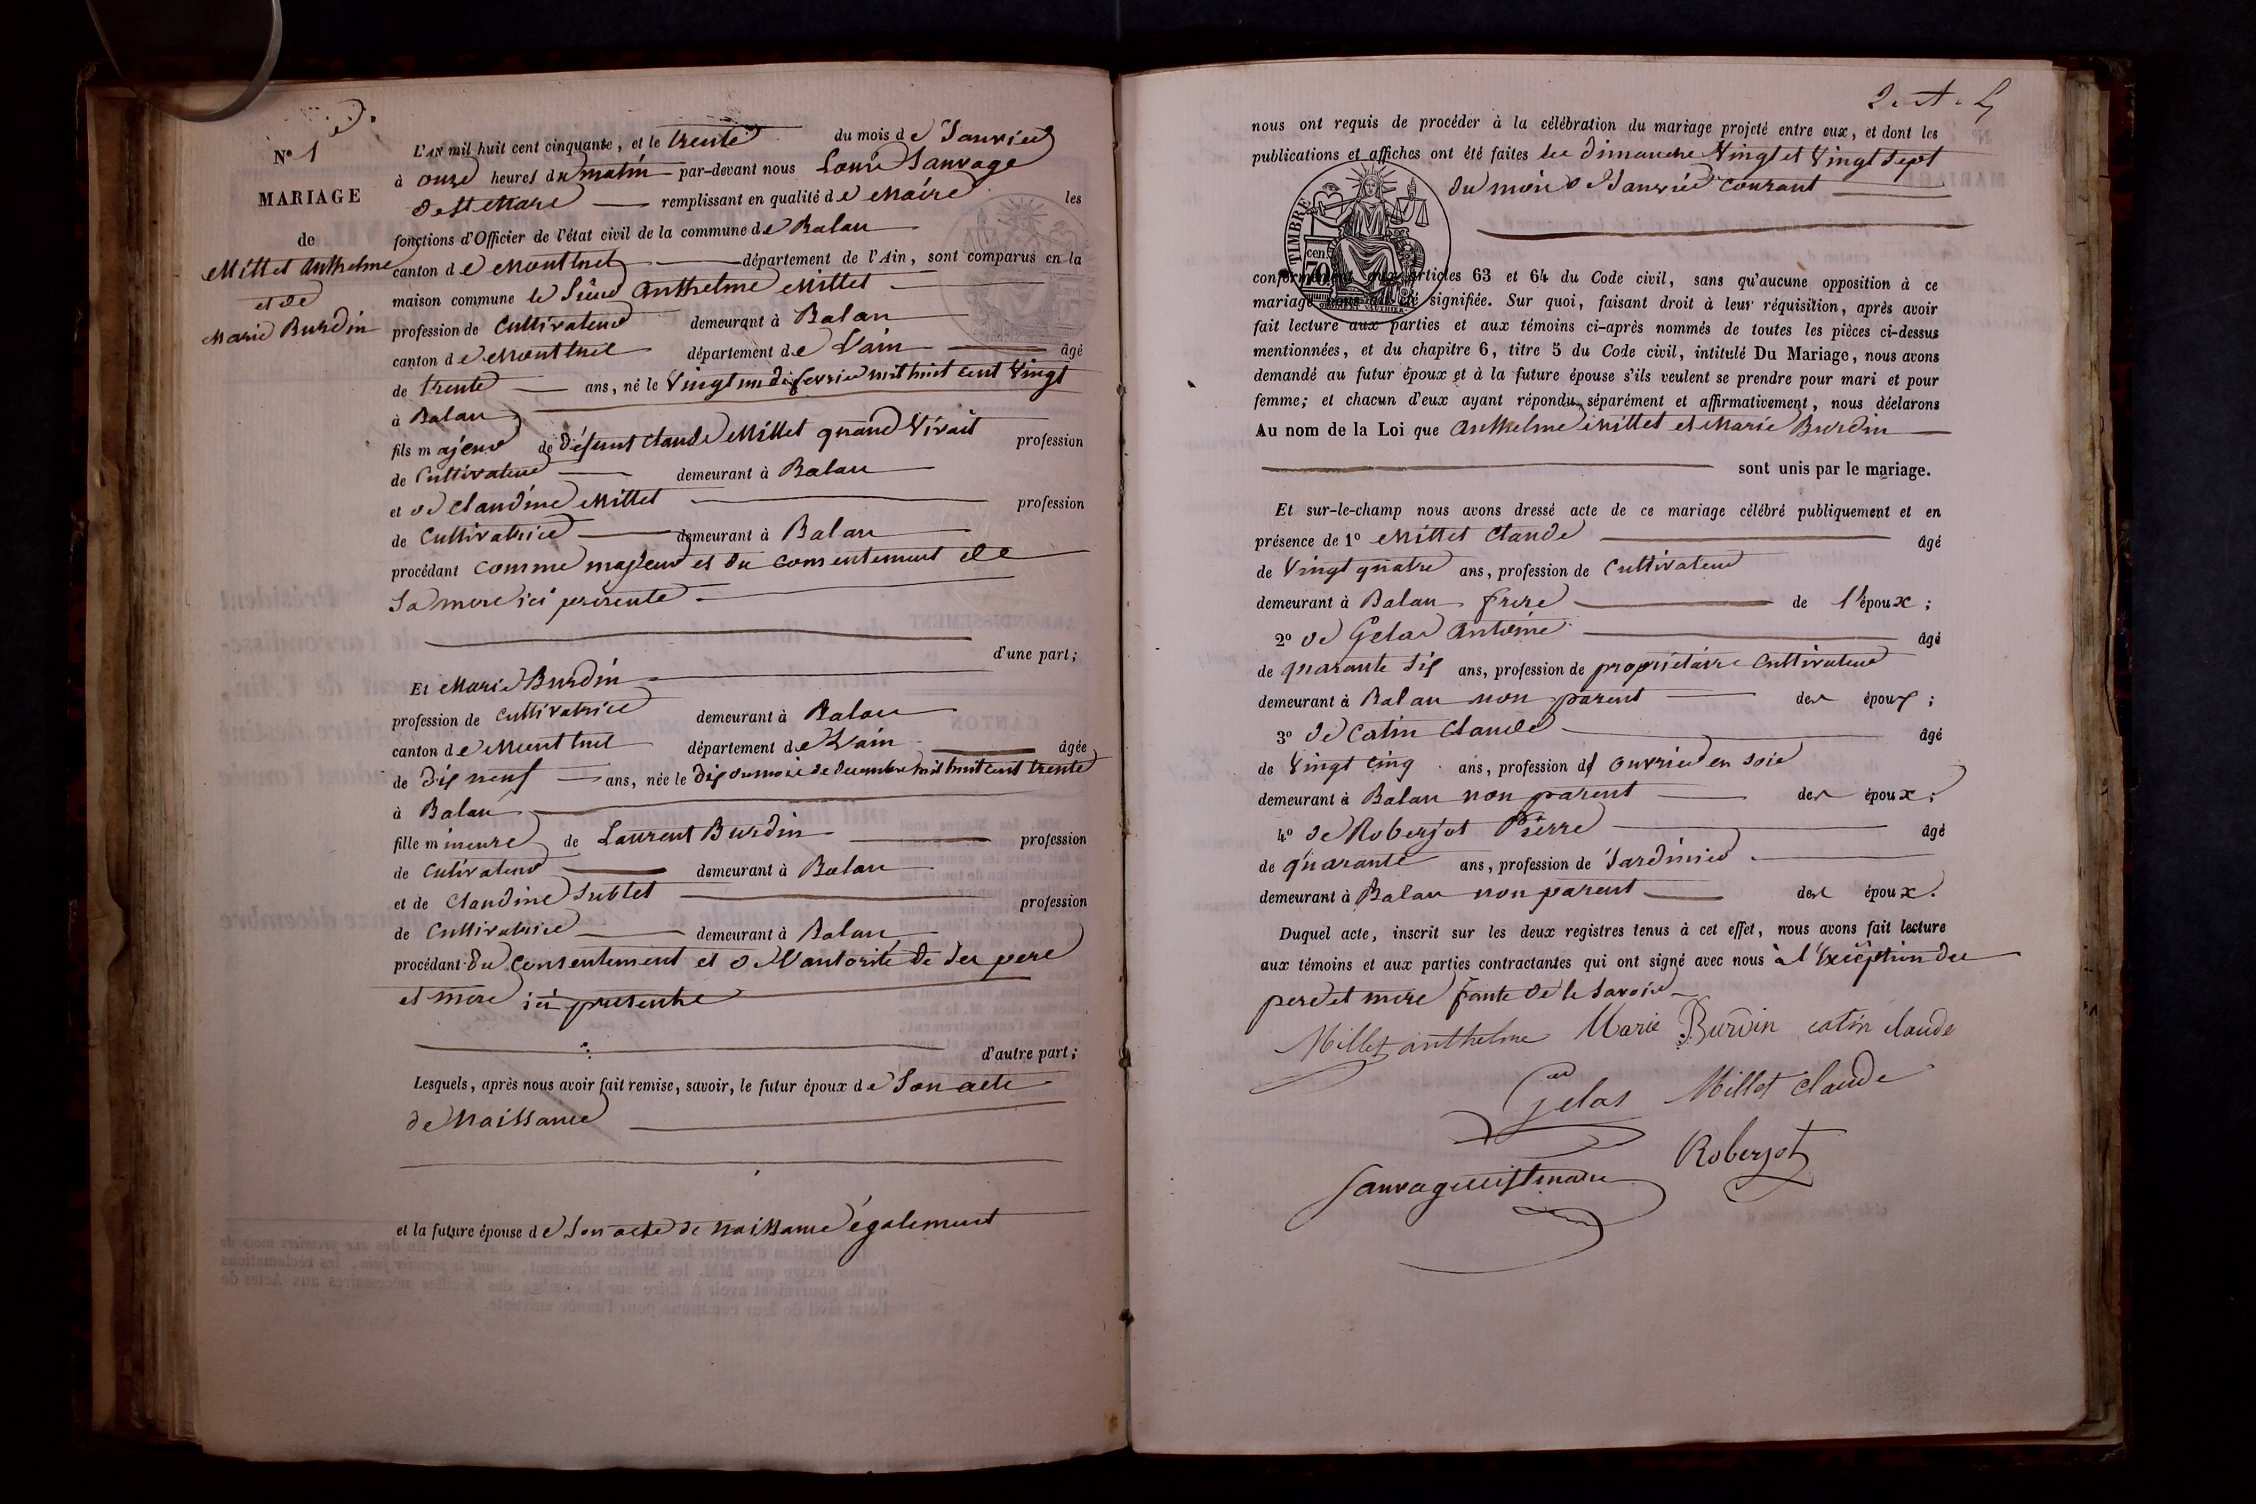 N° 1
MARIAGE
de
Millet Anthelme
et de
Marie Burdin
L'AN mil huit cent cinquante, et le trente du mois de Janvier
à onze heures du matin par-devant nous Louis Sauvage
de St Mare remplissant en qualité de Maire les
fonctions d'Officier de l'état civil de la commune de Balan
canton de Montluel département de l'Ain, sont comparus en la
maison commune le Sieur Anthelme Millet
profession de Cultivateur demeurant à Balan
canton de Montluel département de L'ain âgé
de trente ans, né le Vingt un de fevrier mil huit cent Vingt
à Balan
fils majeur de Défunt Claude Millet quand Vivait profession
de Cultivateur demeurant à Balan
et de Claudine Millet profession
de Cultivatrice demeurant à Balan
procédant comme majeur et du consentement de
Sa mere ici presente
d'une part;
Et Marie Burdin
profession de Cultivatrice demeurant à Balan
canton de Montluel département de L'ain âgée
de dix neuf ans, née le Dix du mois de Decembre mil huit cent trente
à Balan
fille mineure de Laurent Burdin profession
de Cultivateur demeurant à Balan
et de Claudine Sublet profession
de Cultivatrice demeurant à Balan
procédant du consentement et de L'autorité de Ses pere
et mere ici presents
d'autre part;
Lesquels, après nous avoir fait remise, savoir, le futur époux de Son acte
de Naissance
et la future épouse de Son acte de naissance également
nous ont requis de procéder à la célébration du mariage projeté entre eux, et dont les
publications et affiches ont été faites les dimanches Vingt et Vingt Sept
du mois de Janvier courant
TIMBRE
cen.
70
conformément aux articles 63 et 64 du Code civil, sans qu'aucune opposition à ce
mariage nous ait été signifiée. Sur quoi, faisant droit à leur réquisition, après avoir
fait lecture aux parties et aux témoins ci-après nommés de toutes les pièces ci-dessus
mentionnées, et du chapitre 6, titre 5 du Code civil, intitulé Du Mariage, nous avons
demandé au futur époux et à la future épouse s'ils veulent se prendre pour mari et pour
femme; et chacun d'eux ayant répondu séparément et affirmativement, nous déclarons
Au nom de la Loi que Anthelme Millet et Marie Burdin
sont unis par le mariage.
Et sur-le-champ nous avons dressé acte de ce mariage célébré publiquement et en
présence de 1° Millet Claude âgé
de Vingt quatre ans, profession de Cultivateur
demeurant à Balan frere de l'époux;
2° de Gelas Antoine âgé
de quarante Six ans, profession de propriétaire Cultivateur
demeurant à Balan non parent des époux;
3° de Catin Claude âgé
de Vingt cinq ans, profession d' ouvrier en soie
demeurant à Balan non parent des époux;
4° de Roberjot Pierre âgé
de quarante ans, profession de Jardinier
demeurant à Balan non parent des époux.
Duquel acte, inscrit sur les deux registres tenus à cet effet, nous avons fait lecture
aux témoins et aux parties contractantes qui ont signé avec nous à l'Exception des
pere et mere faute de le Savoir
Millet anthelme Marie Burdin catin claude
Gelas Millet Claude
Roberjot